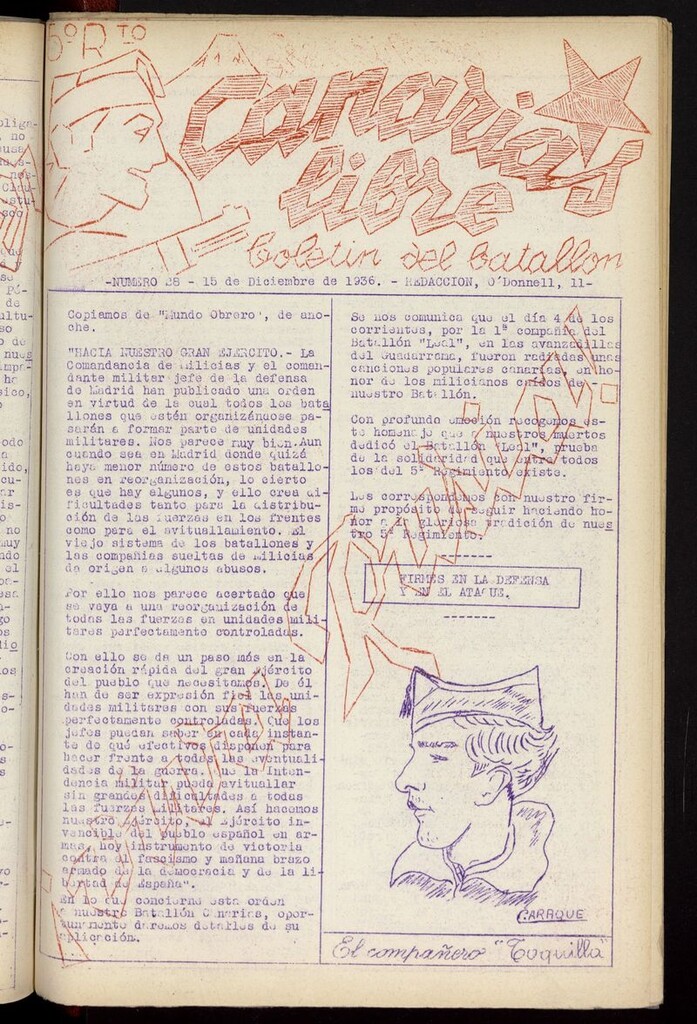 5º RTO
Canarias
libre
boletin del batallon
-NUMERO 28 - 15 de Diciembre de 1936. - REDACCION, O'Donnell, 11-
Copiamos de "Mundo Obrero", de ano-
che.
"HACIA NUESTRO GRAN EJERCITO.- La
Comandancia de Milicias y el coman-
dante militar jefe de la defensa
de Madrid han publicado una orden
en virtud de la cual todos los bata
llones que estén organizándose pa-
sarán a formar parte de unidades
militares. Nos parece muy bien. Aun
cuando sea en Madrid donde quizá
haya menor número de estos batallo-
nes en reorganización, lo cierto
es que hay algunos, y ello crea di-
ficultades tanto para la distribu-
ción de las fuerzas en los frentes
como para el avituallamiento. El
viejo sistema de los batallones y
las compañías sueltas de milicias
da origen a algunos abusos.
Por ello nos parece acertado que
se vaya a una reorganización de
todas las fuerzas en unidades mili-
tares perfectamente controladas.
Con ello se da un paso más en la
creación rápida del gran ejército
del pueblo que necesitamos. De él
han de ser expresión fiel las uni-
dades militares con sus fuerzas
perfectamente controladas. Que los
jefes puedan saber en cada instan-
te de qué efectivos disponen para
hacer frente a todas las eventuali-
dades de la guerra. Que la Inten-
dencia militar pueda avituallar
sin grandes dificultades a todas
las fuerzas militares. Así hacemos
nuestro Ejército, el Ejército in-
vencible del pueblo español en ar-
mas, hoy instrumento de victoria
contra el fascismo y mañana brazo
armado de la democracia y de la li-
bertad de España".
En lo que concierne esta orden
a nuestro Batallón Canarias, opor-
tunamente daremos detalles de su
aplicación.
Se nos comunica que el día 4 de los
corrientes, por la 1ª compañía del
Batallón "Leal", en las avanzadillas
del Guadarrama, fueron radiadas unas
canciones populares canarias, en ho-
nor de los milicianos caídos de
nuestro Batallón.
Con profunda emoción recogemos es-
te homenaje que a nuestros muertos
dedicó el Batallón "Leal", prueba
de la solidaridad que entre todos
los del 5º Regimiento existe.
Les correspondemos con nuestro fir-
me propósito de seguir haciendo ho-
nor a la gloriosa tradición de nues
tro 5º Regimiento.
FIRMES EN LA DEFENSA
Y EN EL ATAQUE.
CARRQUE
El compañero "Toquilla"